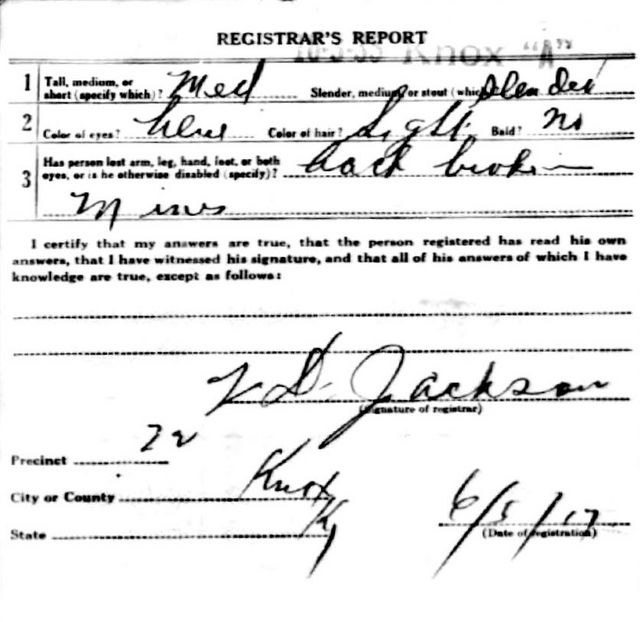 REGISTRAR'S REPORT
Knox "A"
1 Tall, medium, or short (specify which)? Med Slender, medium or stout (which)? Slender
2 Color of eyes? blue Color of hair? Light Bald? no
3 Has person lost arm, leg, hand, foot, or both eyes, or is he otherwise disabled (specify)? back broken
Mines
I certify that my answers are true, that the person registered has read his own
answers, that I have witnessed his signature, and that all of his answers of which I have
knowledge are true, except as follows:
D. Jackson
(Signature of registrar)
Precinct 22
City or County Knox
State Ky 6/5/17
(Date of registration)